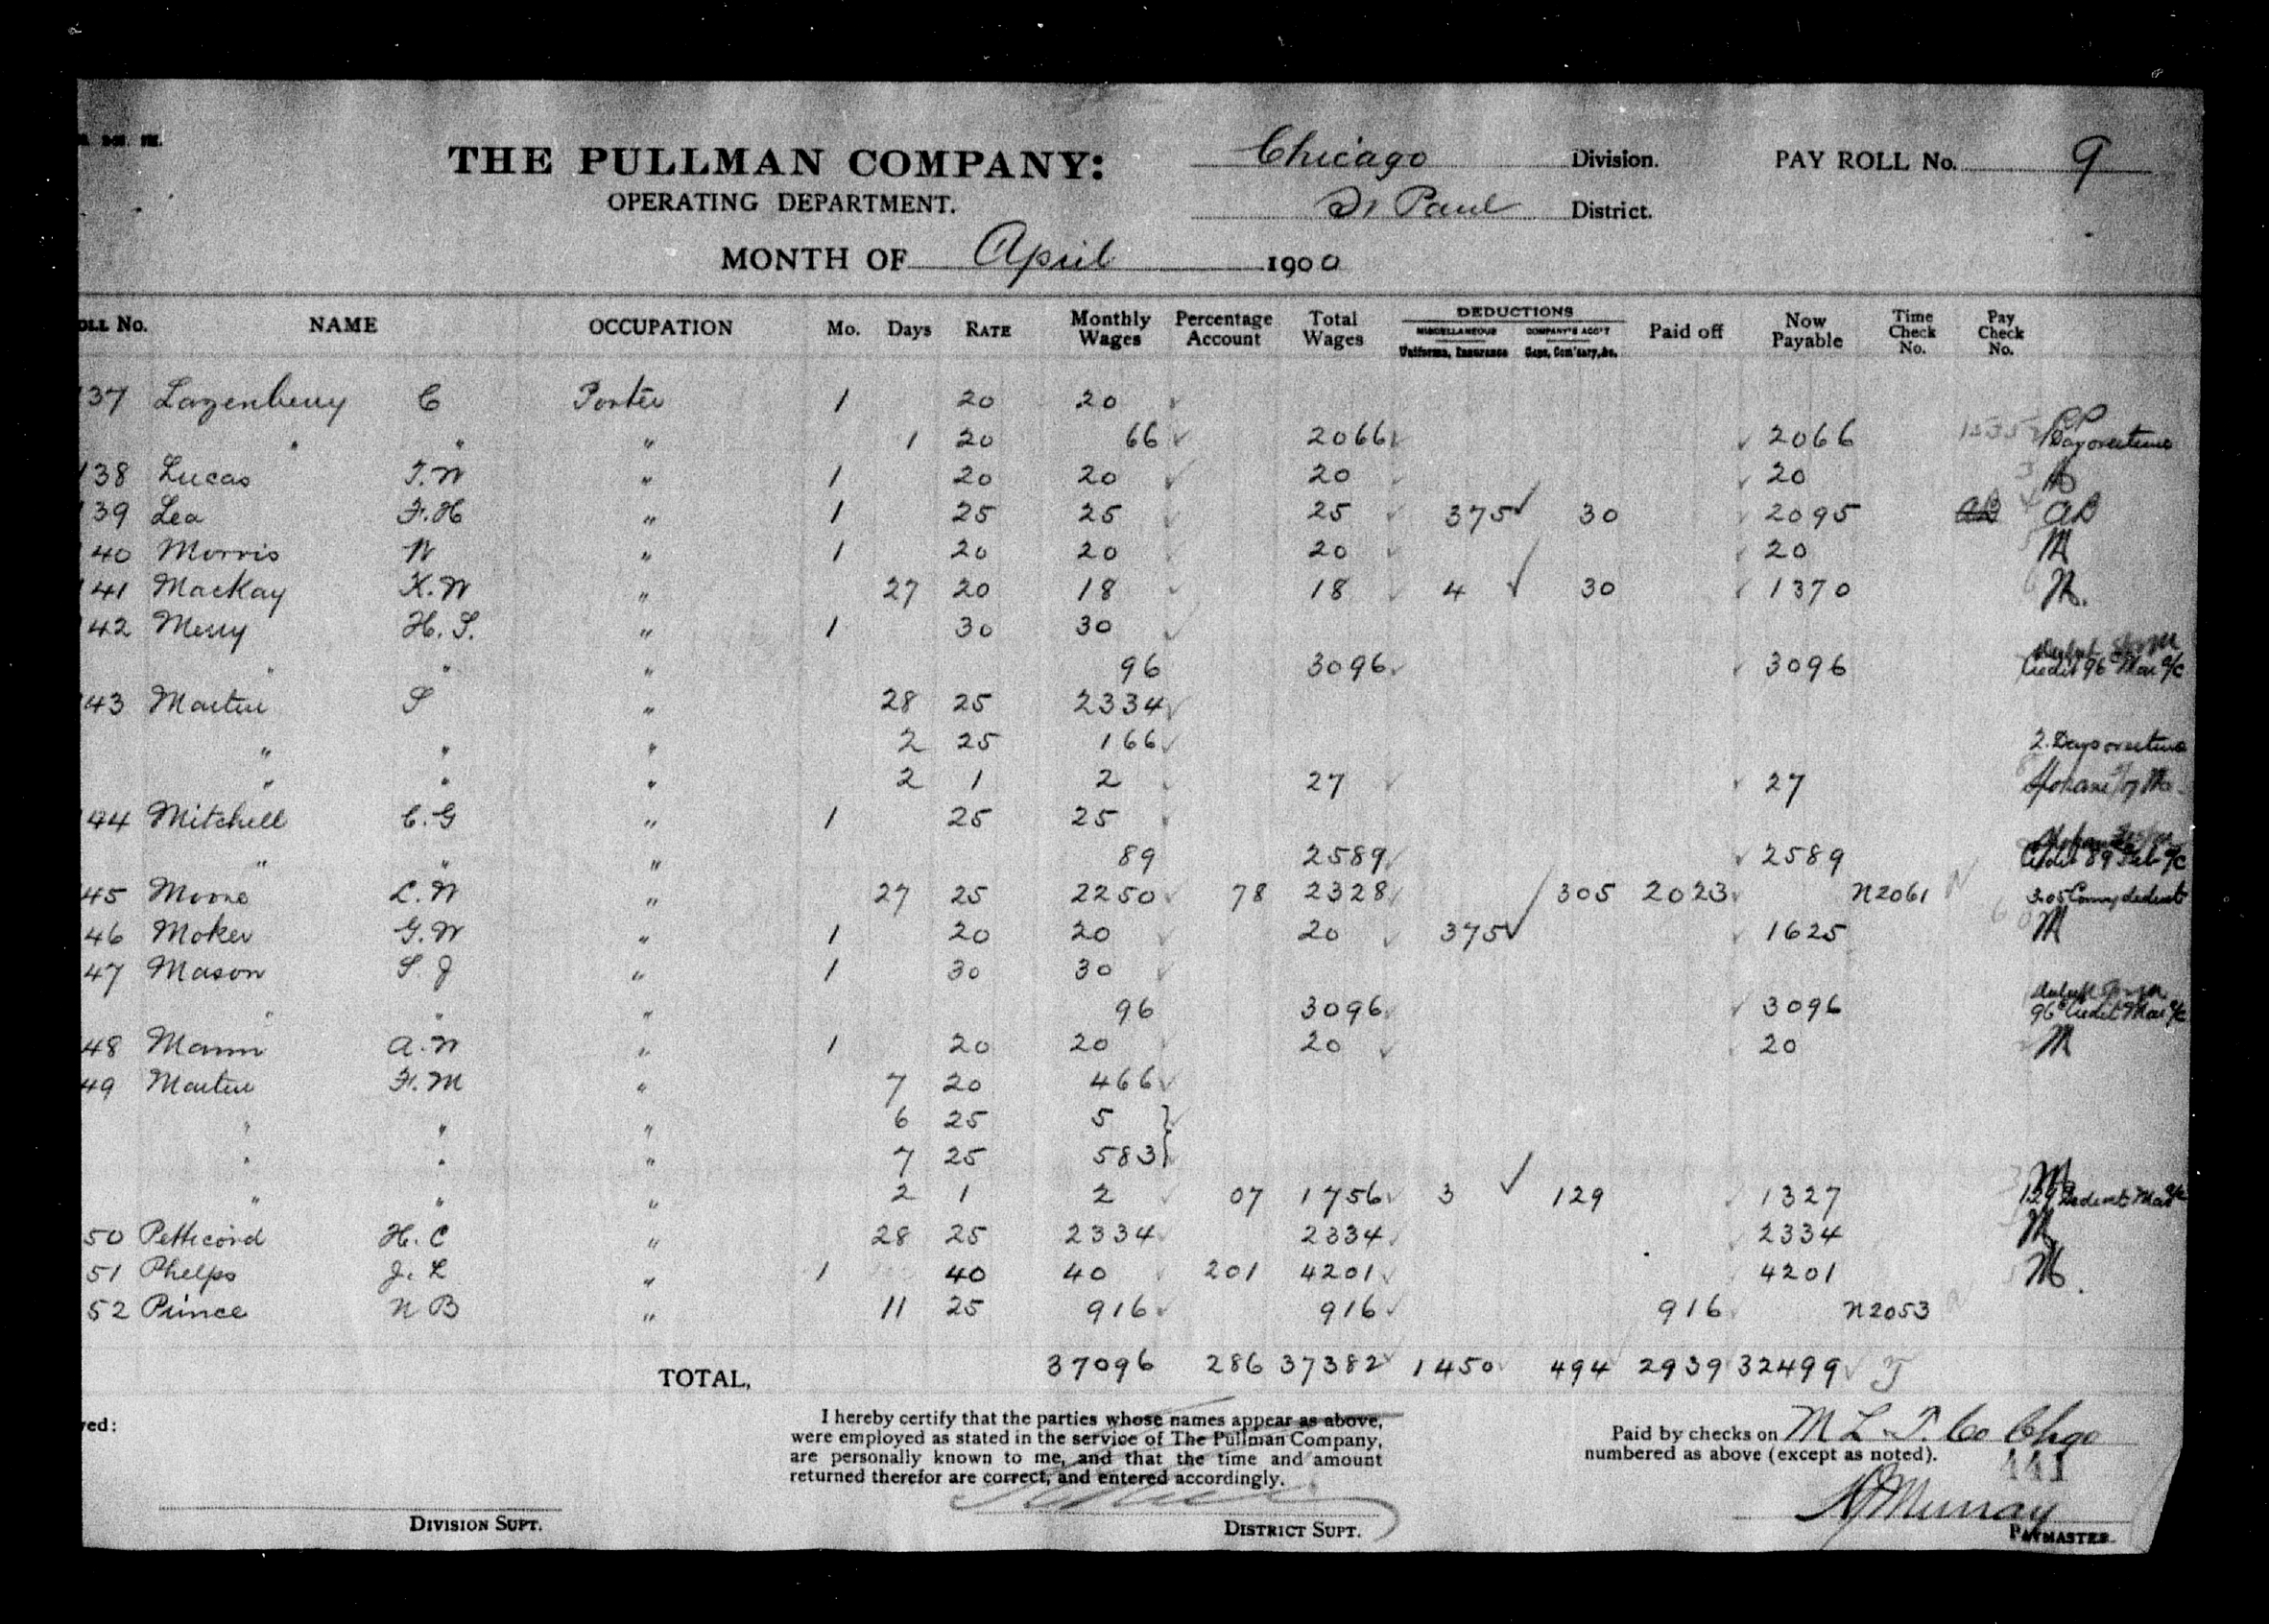 THE PULLMAN COMPANY: Chicago Division. PAY ROLL No. 9
OPERATING DEPARTMENT. St Paul District.
MONTH OF April 1900
OLL No. NAME OCCUPATION Mo. Days RATE Monthly Wages Percentage Account Total Wages DEDUCTIONS MISCELLANEOUS Uniforms, Insurance COMPANY'S ACC'T Caps, Com'sary, &c. Paid off Now Payable Time Check No. Pay Check No.
137 Lazenberry C Porter 1 20 20
" " " 1 20 66 2066 2066 1 Day overtime
138 Lucas T.W " 1 20 20 20 20
139 Lea F.H " 1 25 25 25 375 30 2095 AB
140 Morris W " 1 20 20 20 20 M
141 Mackay K.W " 27 20 18 18 4 30 1370 M.
142 Merry H.S. " 1 30 30
" " " 96 3096 3096 Credit 96c Mar a/c
143 Martin S " 28 25 2334
" " " 2 25 166 2 Days overtime
" " " 2 1 2 27 27
144 Mitchell C.G " 1 25 25
" " " 89 2589 2589 Credit 89 Feb a/c
45 Moore L.W " 27 25 2250 78 2328 305 2023 N2061
46 Moker G.W " 1 20 20 20 375 1625 M
47 Mason S.J " 1 30 30
" " " 96 3096 3096 96c Credit Mar a/c
48 Mann A.W " 1 20 20 20 20 M
49 Martin F.M " 7 20 466
" " " 6 25 5
" " " 7 25 583
" " " 2 1 2 07 1756 3 129 1327 M
50 Petticord H.C " 28 25 2334 2334 2334 M
51 Phelps J.L " 1 40 40 201 4201 4201 M.
52 Prince N B " 11 25 916 916 916 N2053
TOTAL, 37096 286 37382 1450 494 2939 32499
ved:
I hereby certify that the parties whose names appear as above,
were employed as stated in the service of The Pullman Company,
are personally known to me, and that the time and amount
returned therefor are correct, and entered accordingly.
Paid by checks on M L & T. Co Chgo
numbered as above (except as noted).
Murray
DIVISION SUPT. DISTRICT SUPT. PAYMASTER.